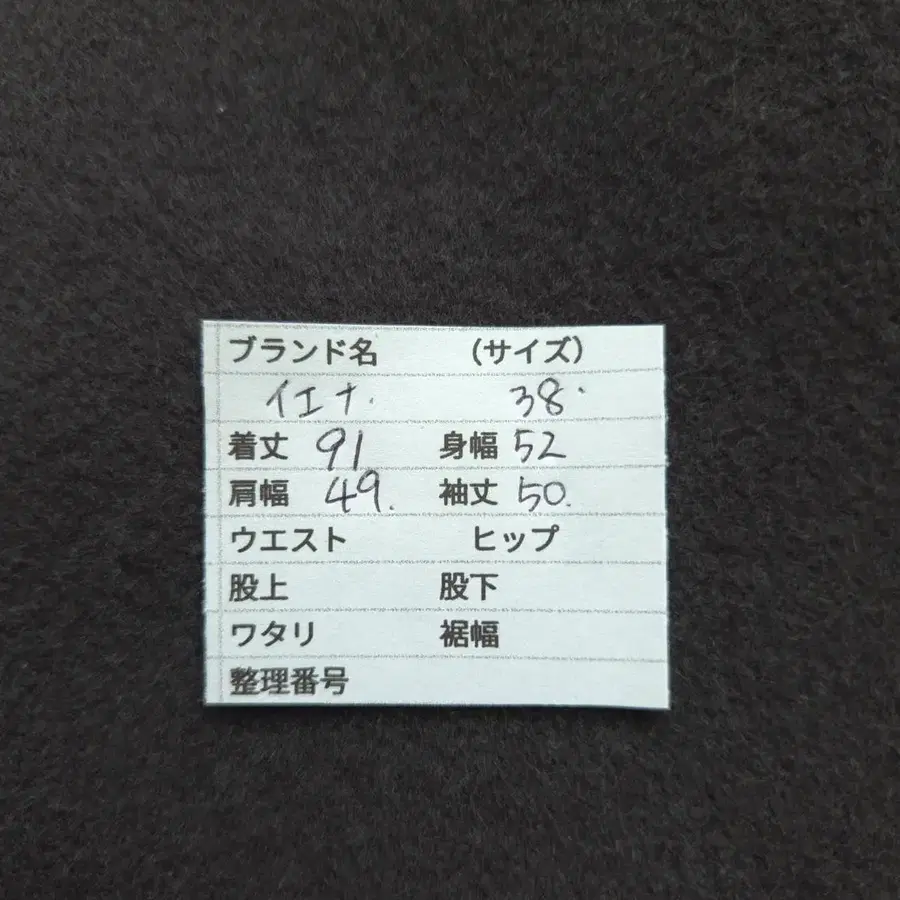 ブランド名 （サイズ）
イエナ. 38.
着丈 91 身幅 52
肩幅 49. 袖丈 50.
ウエスト ヒップ
股上 股下
ワタリ 裾幅
整理番号